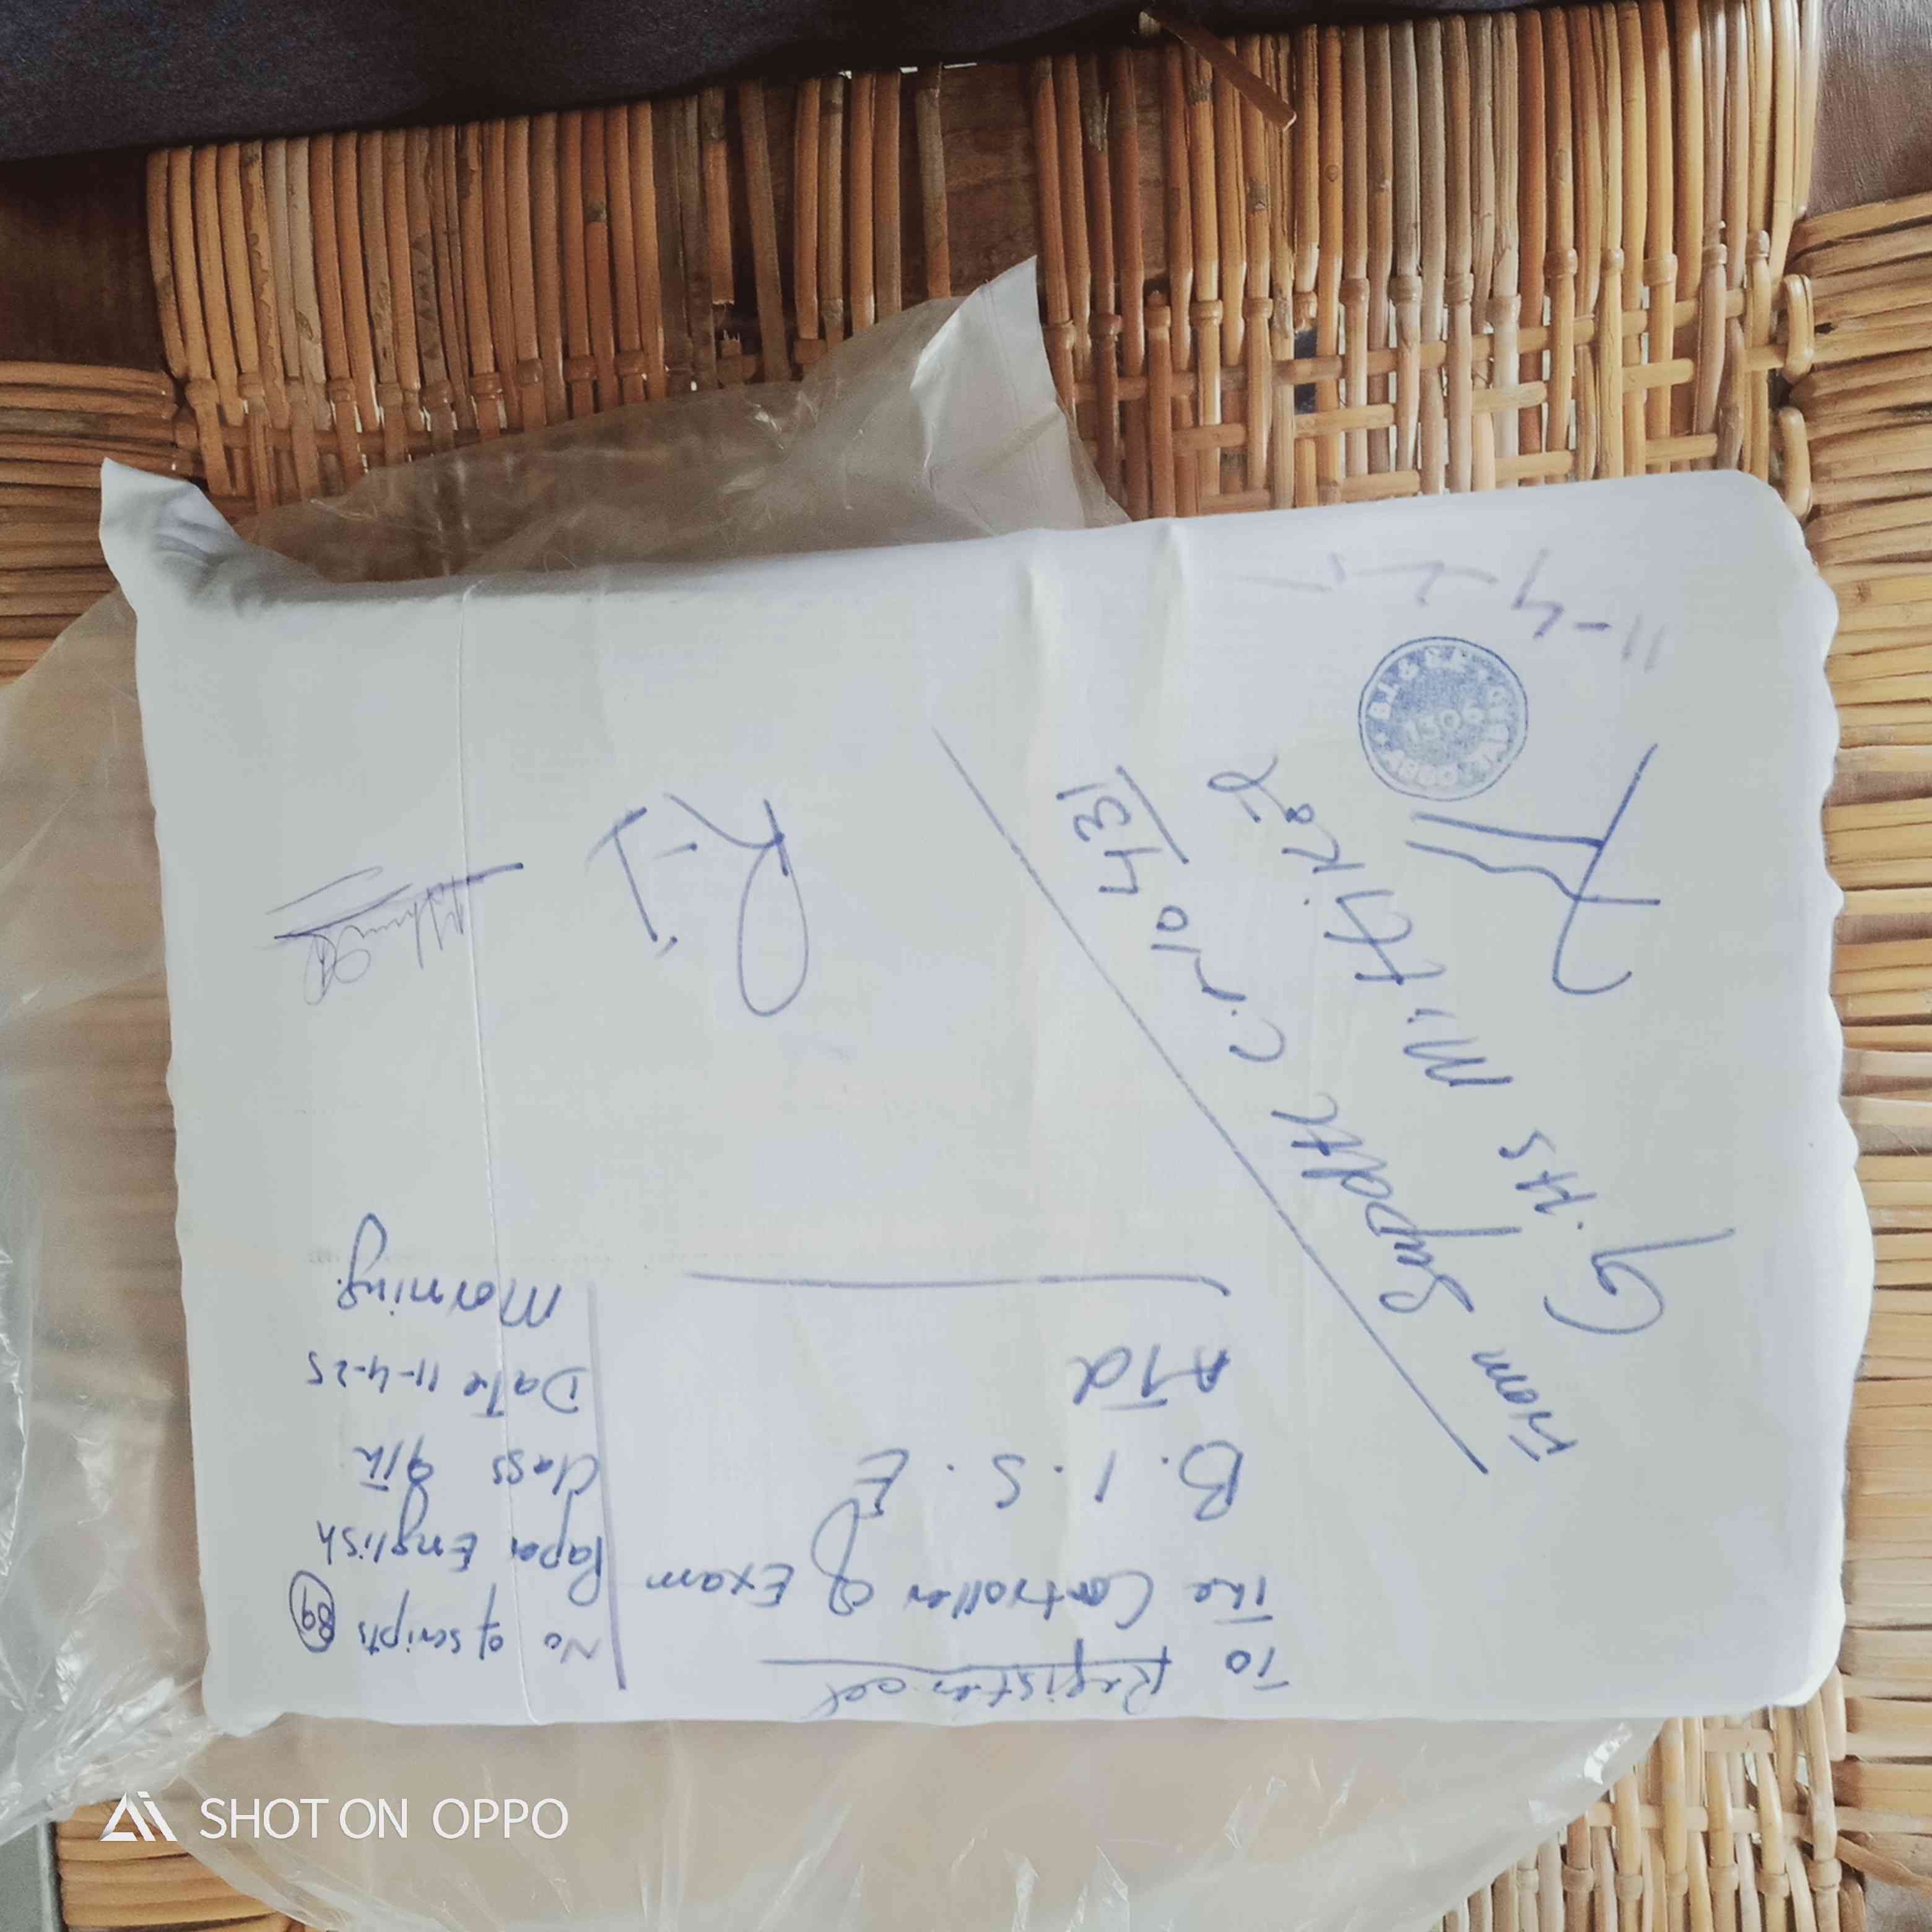 Registered
To
The Controller of Exam
B.I.S.E
ATd
No of scripts 89
Paper English
Class 9th
Date 11-4-25
Morning
From Supdtt C.No 431
G.HS Mithi Kot
1306
11-4-25
SHOT ON OPPO